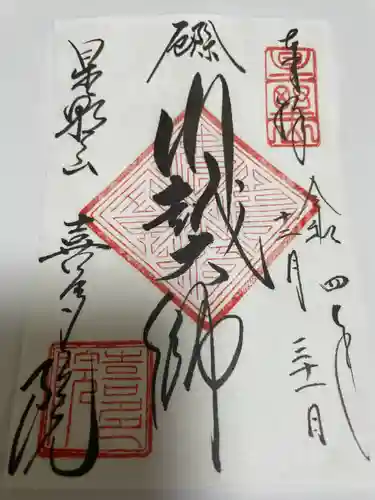 奉拝
令和四年
十二月三十一日
厄除
川越大師
星野山
喜多院